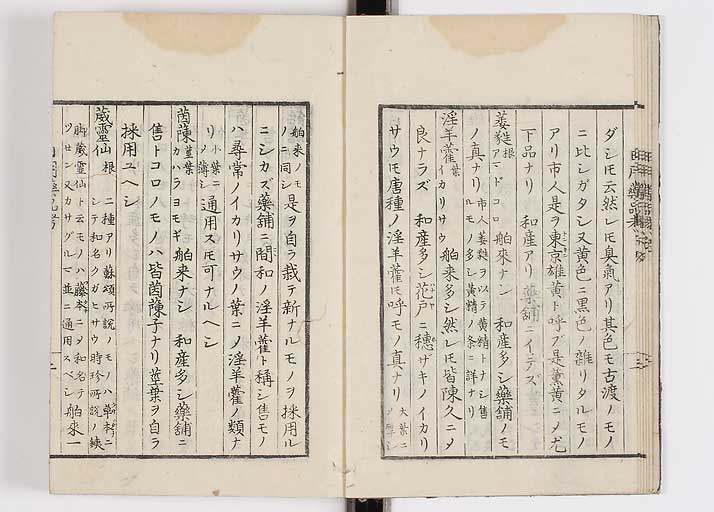 ダシ𪜈云然レ𪜈臭氣アリ其色モ古渡ノモノ
ニ比シガタシ又黄色ニ黒色ノ雜リタルモノ
アリ市人是ヲ東京雄黄ト呼ブ是薫黄ニメ尤
下品ナリ 和産アリ藥舗ニイテズ
萎蕤 根 アマドコロ 舶來ナシ 和産多シ藥舗ノモ
ノ真ナリ 市人萎蕤ヲ以テ黄精トナシ售ルモノ多シ黄精ノ条ニ詳ナリ
淫羊藿 葉 イカリサウ 舶來多シ然レ𪜈皆陳久ニメ
良ナラズ 和産多シ花戸ニ穗ザキノイカリ
サウ𪜈唐種ノ淫羊藿𪜈呼モノ真ナリ 大葉ニ
舶來ノモノニ同シ 是ヲ自ラ栽テ新ナルモノヲ採用ル
ニシカズ藥舗ニ間和ノ淫羊藿ト稱シ售モノ
ハ尋常ノイカリサウノ葉ニメ淫羊藿ノ類ナ
リ 小葉ニノ薄シ 通用ス𪜈可ナルヘシ
茵蔯 莖葉 カハラヨモギ 舶來ナシ 和産多シ藥舗ニ
售トコロノモノハ皆茵蔯子ナリ莖葉ヲ自ラ
採用ユヘシ
葳靈仙 根 二種アリ蘇頌所說ノモノハ草本ニ
シテ和名クガイサウ時珍所說ノ鐵
脚葳靈仙ト云モノハ藤本ニメ和名テ
ツセン又カサグルマ並ニ通用スベシ 舶來一